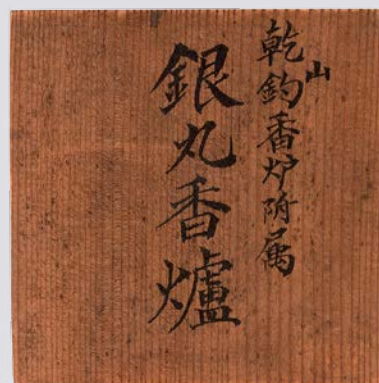 乾山釣香炉附属
銀丸香爐